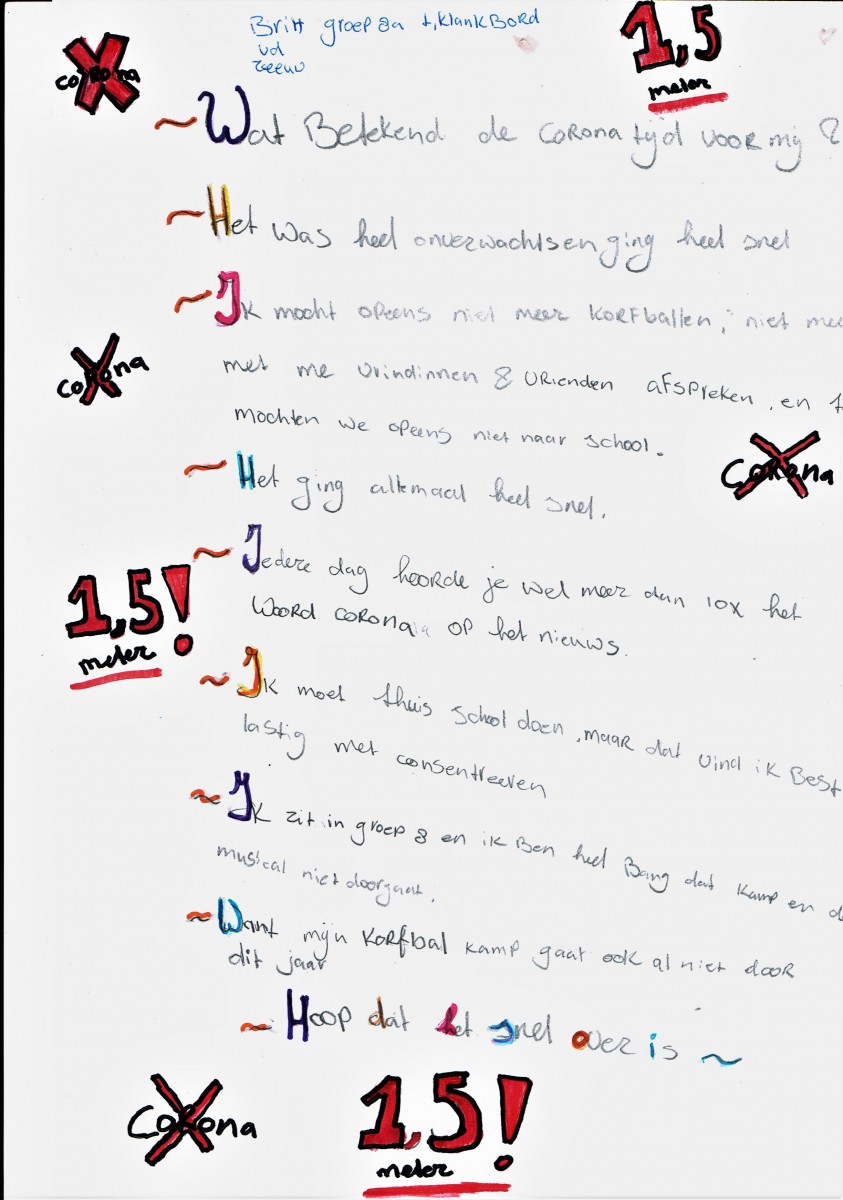 Britt groep 8a t,klankBord
vd
zeeuw
1,5
meter
corona
~ Wat Betekend de corona tijd voor mij ?
~ Het was heel onverwachts en ging heel snel
~ Ik mocht opeens niet meer korfballen, niet
met me vrindinnen & vrienden afspreken, en
mochten we opeens niet naar school.
corona
corona
~ Het ging allemaal heel snel.
~ Iedere dag hoorde je wel meer dan 10x het
woord corona op het nieuws.
1,5!
meter
~ Ik moet thuis school doen, maar dat vind ik Best
lastig met consentreeren
~ Ik zit in groep 8 en ik Ben heel Bang dat kamp en
musical niet doorgaat.
~ Want mijn korfbal kamp gaat ook al niet door
dit jaar
~ Hoop dat het snel over is ~
corona
1,5!
meter